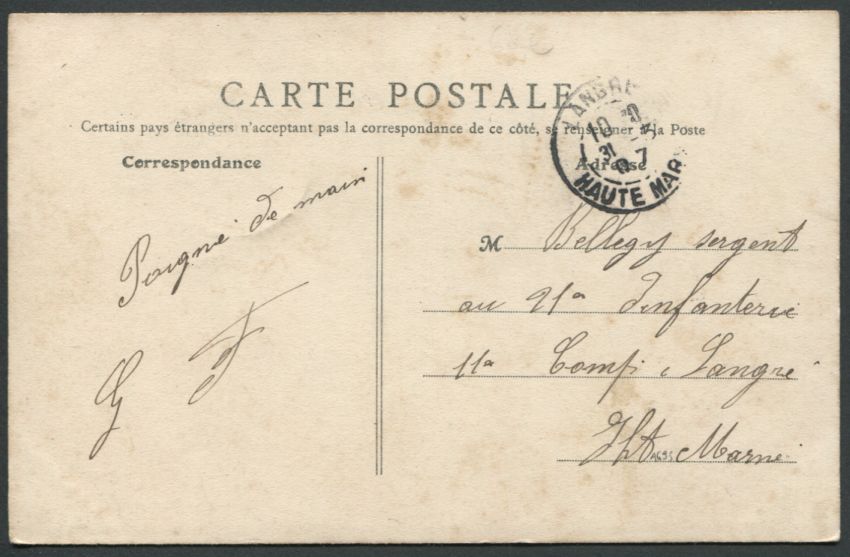 CARTE POSTALE
Certains pays étrangers n'acceptant pas la correspondance de ce côté, se renseigner à la Poste
Correspondance
Adresse
LANGRE
10
31
07
HAUTE MAR
Poigné de main
M Bellegy sergent
au 21e d'infanterie
11e Comp. Langre
Hte Marne